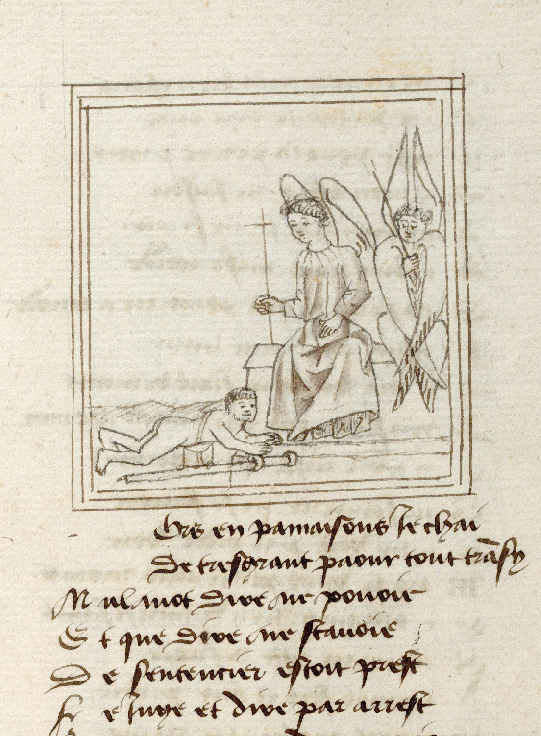 Ors en pamaisons je chai
De tresgrant paour tout trasy
Nul mot dire ne pouoie
Et que dire ne scauoie
De sentencier estoit prest
Le Juge et dire par arrest